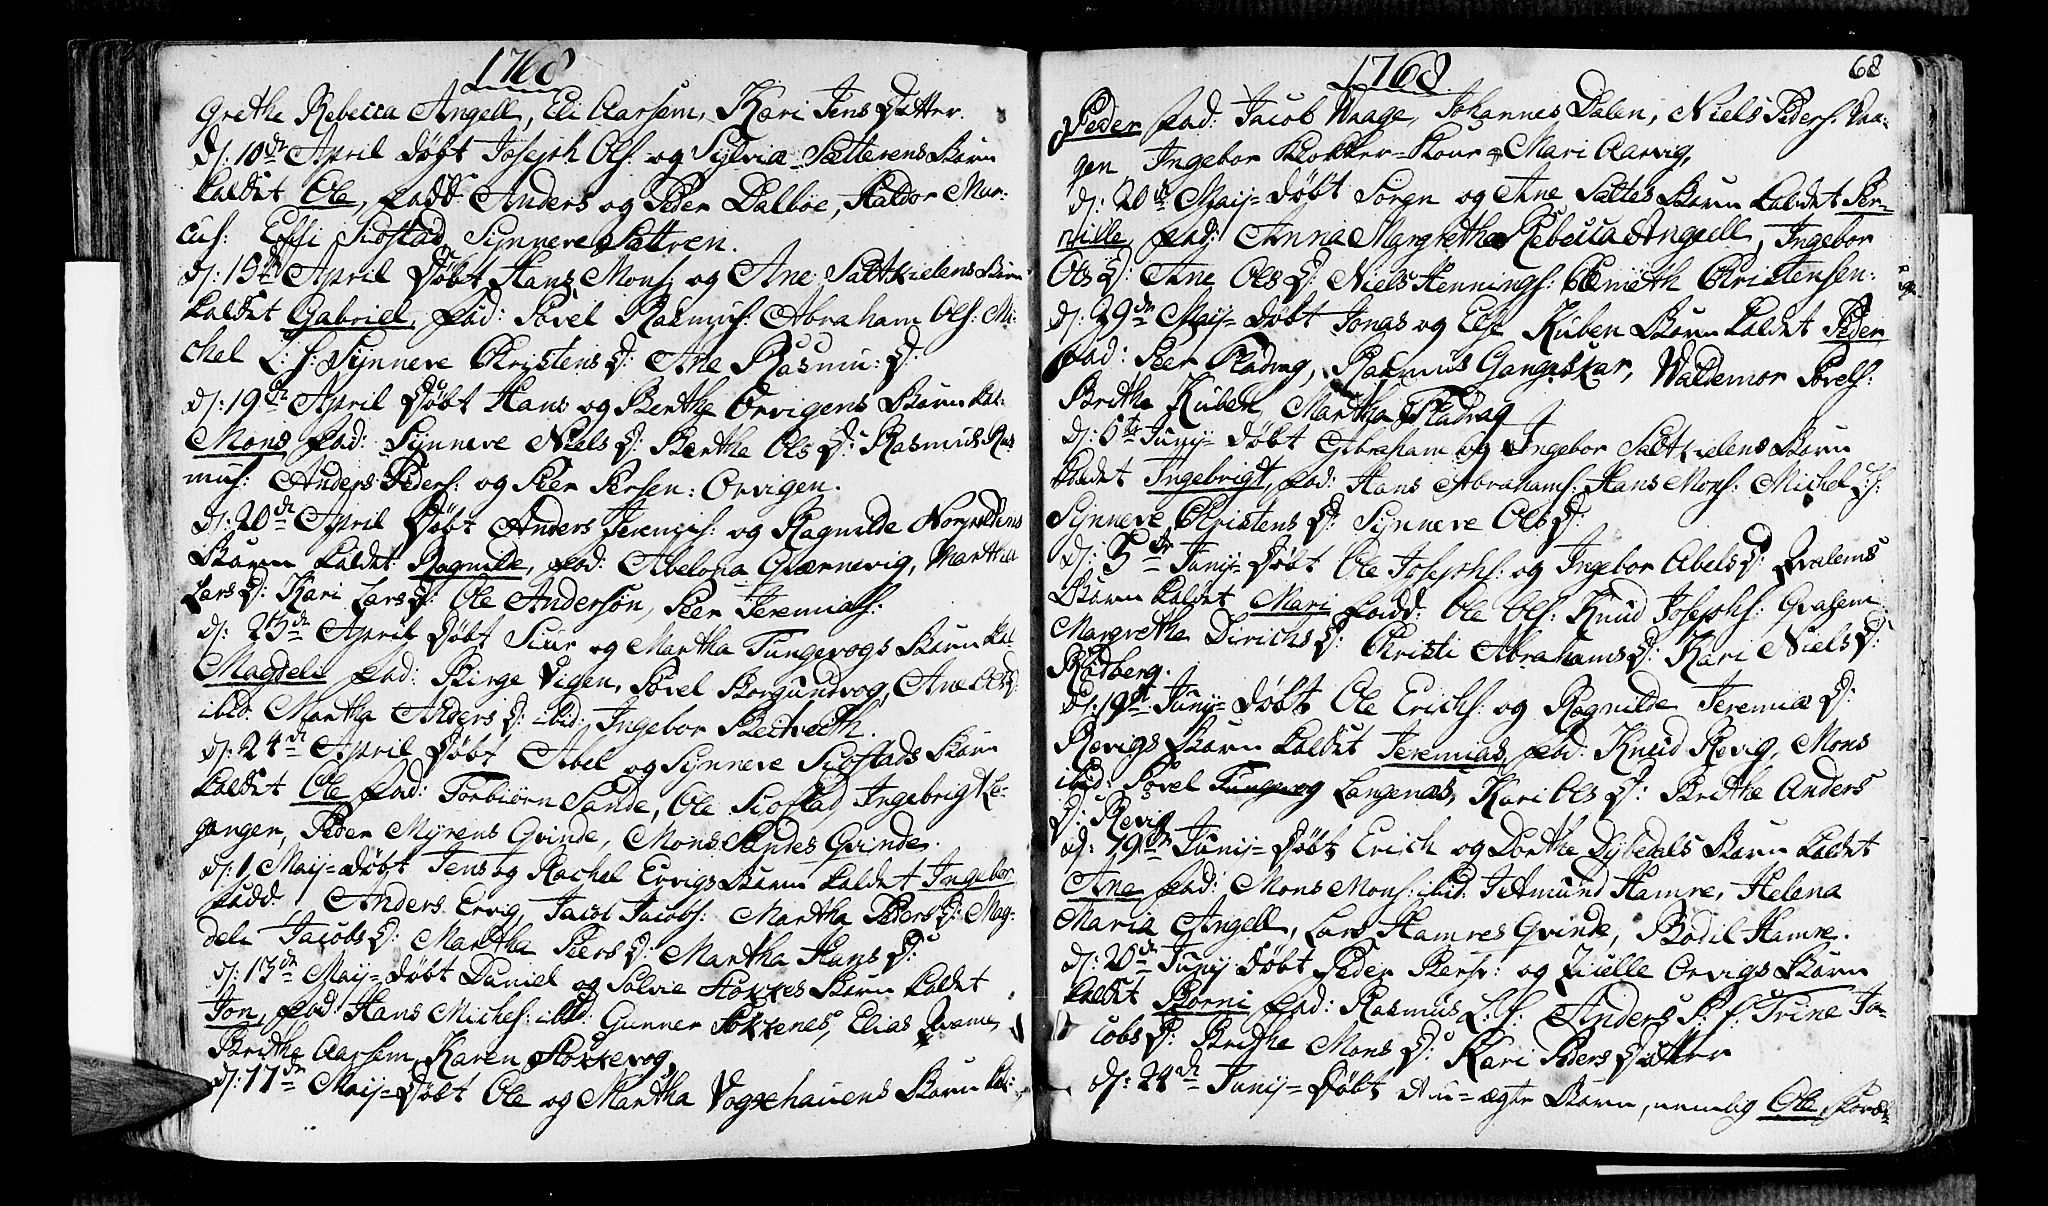 1768
Grethe Rebecca Angell, Eli Aarsem, Kari Jens Datter.
d: 10de April Døbt Joseph Ols: og Sylvia Sætterens Barn
kaldet Ole, fadd: Anders og Peder Dalbøe, Haldor Mar-
cus: Effi Siostad, Synneve Sættren.
d: 15de April Døbt Hans Mons: og Ane Saltkielens Barn
kaldet Gabriel, fad: Povel Rasmus: Abraham Ols: Mi-
chel L: s: Synneve Christens D: Ane Rasmu: D:
d: 19de April Døbt Hans og Berthe Orvigens Barn kal:
Mons fad: Synneve Niels D: Berthe Ols D: Rasmus Ras
mus: Anders Peders: og Peer Persen: Orvigen.
d: 20de April Døbt Anders Jeremis: og Ragnilde
Barn kaldet Ragnilde, fad: Abelona Giærnevig, Martha
Lars D: Kari Lars D: Ole Andersøn, Peer Jeremias:
d: 23de April Døbt Siur og Martha Tungevogs Barn kal
Magdeli fad: Birge Vigen, Povel Borgundvog, Ane Ols D:
ibid: Martha Anders D: ibid: Ingebor Breitveith.
d: 24de April Døbt Abel og Synneve Siostads Barn
kaldet Ole fad: Torbiørn Sande, Ole Siostad, Ingebrigt Le-
gangen, Peder Myrens Qvinde, Mons Sandes Qvinde.
d: 1 Maij= Døbt Jens og Rachel Ervigs Barn kaldet Ingebor
fadd: Anders Ervig, Jacob Jacobs: Martha Peders D: Mag-
deli Jacobs D: Martha Peers D: Martha Hans D:
d: 13de Maij= Døbt Daniel og Solvie Stokkes Barn kaldet
Jon, fad: Hans Michels: ibid: Gunner Stokkenes, Elias Kvame,
Brithe Aarsem, Karen Stokkevog
d: 17de Maij= Døbt Ole og Martha Vogshauens Barn kal:
1768.
68
Peder fad: Jacob Waage, Johannes Dalen, Niels Peders: Vaa-
gen Ingebor Klokker=Kour og Mari Aarvig,
d: 20de Maij= Døbt Soren og Ane Saltes Barn kaldet Per-
nille fad: Anna Margrethe Rebecca Angell, Ingebor
Ols D: Ane Ols D: Niels Hennings: Christensen:
d: 29de Maij= Døbt Jonas og Else Kuben Barn kaldet Peder
fad: Peer Fladvag, Rasmus Gangeskar, Waldemor Povels:
Brithe Kuben, Martha Fladvag
d: 5te Junij= Døbt Abraham og Ingebor Saltkielens Barn
kaldet Ingebrigt, fad: Hans Abrahams: Hans Mons: Michel L: s:
Synneve Christens D: Synneve Ols D:
d: 5te Junij= Døbt Ole Josephs: og Ingebor Abels D: Qvalems
Barn kaldet Mari fadd: Ole Ols: Knud Josephs: Qvalem
Margrethe Dirichs D: Christi Abrahams D: Kari Niels D:
Rødberg.
d: 19de Junij= Døbt Ole Erichs: og Ragnilde Jeremiæ D:
Revigs Barn kaldet Jeremias, fad: Knud Revig, Mons
ibid: Povel Tungevog Langenæs, Kari Ols D: Brithe Anders
D: Revig
d: 19de Junij= Døbt Erich og Dorthe Dybedals Barn kaldet
Ane fad: Mons Mons: ibid: Jetmund Hamre, Helena
Maria Angell, Lars Hamres Qvinde, Bodil Hamre.
d: 20de Junij Døbt Peder Pers: og Zicelle Orvigs Barn
kaldet Borni fad: Rasmus L: s: Anders P: s: Trine Ja-
cobs D: Brithe Mons D: Kari Peders Datter
d: 24de Junij= Døbt et u=ægte Barn, nemlig Ole,